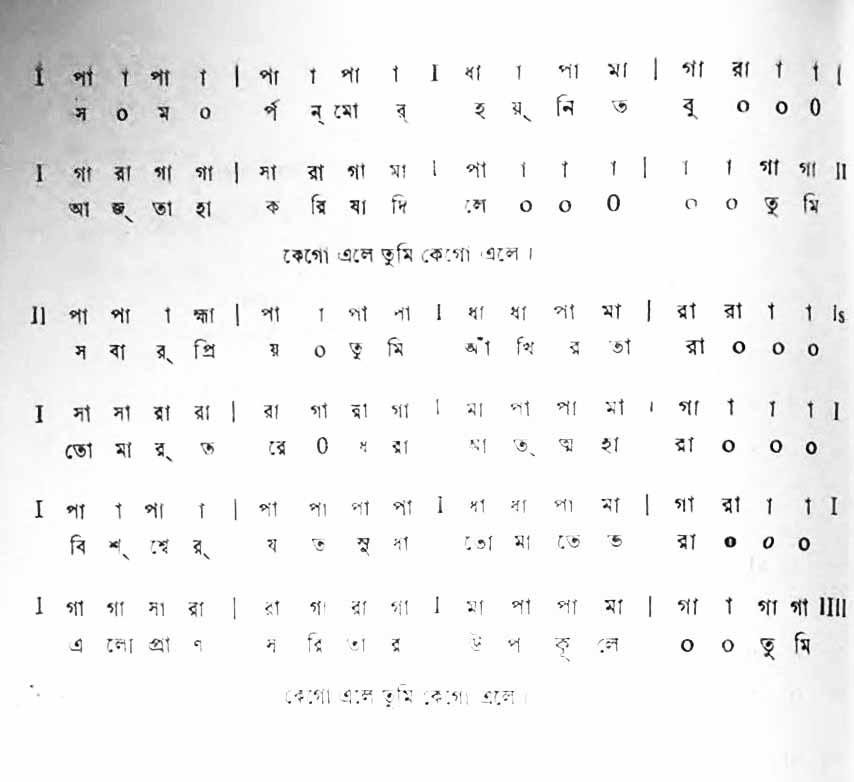 I পা া পা া | পা া পা া I ধা া পা মা | গা রা া া I
স ০ ম ০ র্প ন্ মো র্ হ য়্ নি ত বু ০ ০ ০
I গা রা গা গা | সা রা গা মা I পা া া া | া া গা গা II
আ জ্ তা হা ক রি যা দি লে ০ ০ ০ ০ ০ তু মি
কেগো এলে তুমি কেগো এলে।
II পা পা া হ্মা | পা া পা না I ধা ধা পা মা | রা রা া া Is
স বা র্ প্রি য় ০ তু মি আঁ খি র তা রা ০ ০ ০
I সা সা রা রা | রা গা রা গা I মা পা পা মা । গা া া া I
তো মা র্ ত রে ০ ধ রা আ ত্ ত্ম হা রা ০ ০ ০
I পা া পা া | পা পা পা পা I ধা ধা পা মা | গা রা া া I
বি শ্ শ্বে র্ য ত সু ধা তো মা তে ভ রা ০ ০ ০
I গা গা সা রা | রা গা রা গা I মা পা পা মা | গা া গা গা IIII
এ লো প্রা ণ স রি তা র উ প কূ লে ০ ০ তু মি
কেগো এলে তুমি কেগো এলে।